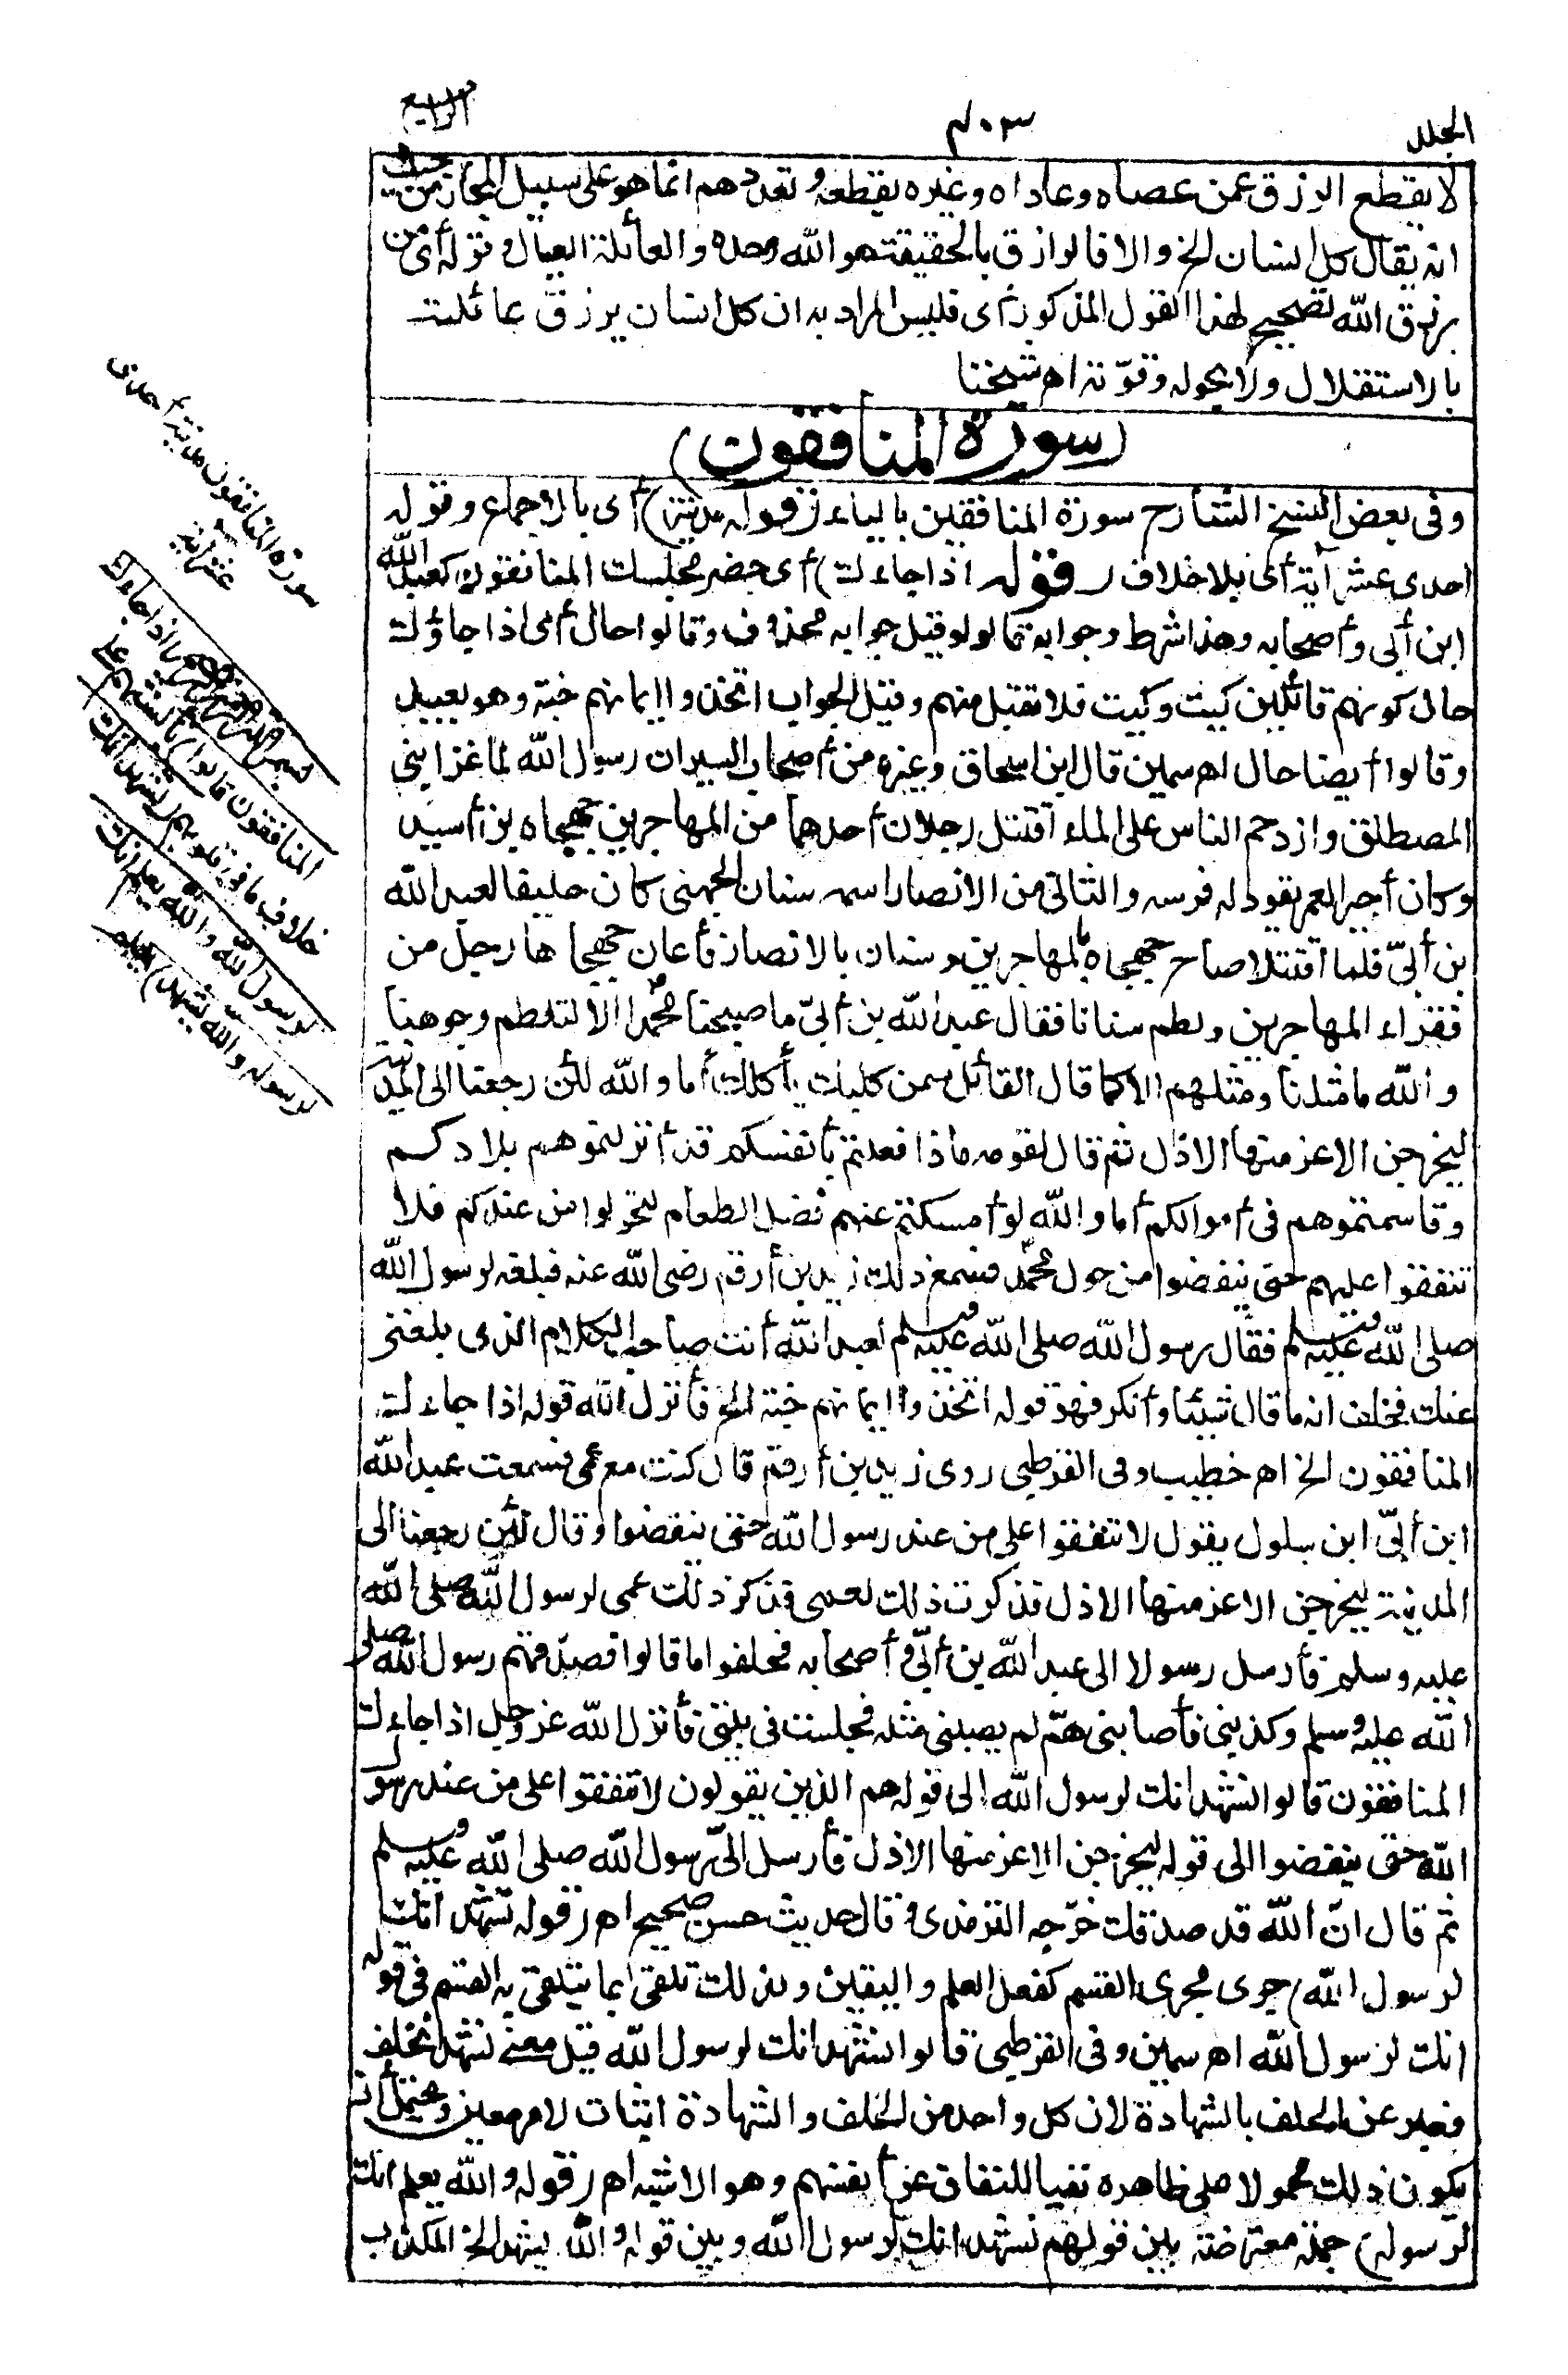 المجلد
٤٠٣
الرابع
لا يقطع الرزق عمن عصاه وعاداه وغيره يقطعه وتعددهم انما هو على سبيل المجاز من حيث
انه يقال كل انسان الخ والا فالرازق بالحقيقة هو الله وحده والعائلة العيال وقوله أى من
رزق الله تصحيح لهذا القول المذكور أى فليس المراد به ان كل انسان يرزق عائلته
بالاستقلال ولا بحوله وقوته اه شيخنا
(سورة المنافقون)
وفى بعض النسخ الشارح سورة المنافقين بالياء (قوله مدنية) أى بالاجماع وقوله
احدى عشر آية أى بلا خلاف (قوله اذا جاءك) أى حضر مجلسك المنافقون كعبد الله
ابن أبى وأصحابه وهذا شرط وجوابه قالوا وقيل جوابه محذوف وقالوا حال أى اذا جاؤك
حال كونهم قائلين كيت وكيت فلا تقبل منهم وقيل الجواب اتخذوا ايمانهم جنة وهو بعيد
وقالوا أيضا حال اه سمين قال ابن اسحاق وغيره من أصحاب السير ان رسول الله لما غزا بنى
المصطلق وازدحم الناس على الماء اقتتل رجلان أحدهما من المهاجرين جهجاه بن أسيد
وكان أجير العمر يقود له فرسه والثانى من الانصار اسمه سنان الجهنى كان حليفا لعبد الله
بن أبىّ فلما اقتتلا صاح جهجاه بالمهاجرين وسنان بالانصار فأعان جهجاها رجل من
فقراء المهاجرين ولطم سنانا فقال عبد الله بن أبىّ ما صحبنا محمدا الا لتلطم وجوهنا
والله ما مثلنا ومثلهم الا كما قال القائل سمن كلبك يأكلك أما والله لئن رجعنا الى المدينة
ليخرجن الاعز منها الاذل ثم قال لقومه ماذا فعلتم بأنفسكم قد أنزلتموهم بلادكم
وقاسمتموهم فى أموالكم أما والله لو أمسكتم عنهم فضل الطعام لتحولوا من عندكم فلا
تنفقوا عليهم حتى ينفضوا من حول محمد فسمع ذلك زيد بن أرقم رضى الله عنه فبلغه لرسول الله
صلى الله عليه وسلم فقال رسول الله صلى الله عليه وسلم لعبد الله أنت صاحب الكلام الذى بلغنى
عنك فحلف انه ما قال شيئا وأنكر فهو قوله اتخذوا ايمانهم جنة الخ فأنزل الله قوله اذا جاءك
المنافقون الخ اه خطيب وفى القرطبى روى زيد بن أرقم قال كنت مع عمى فسمعت عبد الله
ابن أبىّ ابن سلول يقول لا تنفقوا على من عند رسول الله حتى ينفضوا وقال لئن رجعنا الى
المدينة ليخرجن الاعز منها الاذل فذكرت ذلك لعمى فذكر ذلك عمى لرسول الله صلى الله
عليه وسلم فأرسل رسولا الى عبد الله بن أبىّ وأصحابه فحلفوا ما قالوا فصدقهم رسول الله صلى
الله عليه وسلم وكذبنى فأصابنى همّ لم يصبنى مثله فجلست فى بيتى فأنزل الله عز وجل اذا جاءك
المنافقون قالوا نشهد انك لرسول الله الى قوله هم الذين يقولون لا تنفقوا على من عند رسول
الله حتى ينفضوا الى قوله ليخرجن الاعز منها الاذل فأرسل الىّ رسول الله صلى الله عليه وسلم
ثم قال انّ الله قد صدقك خرّجه الترمذى وقال حديث حسن صحيح اه (قوله نشهد انك
لرسول الله) جرى مجرى القسم كفعل العلم واليقين ولذلك تلقى بما يتلقى به القسم فى قوله
انك لرسول الله اه سمين وفى القرطبى قالوا نشهد انك لرسول الله قيل معنى نشهد نحلف
فعبر عن الحلف بالشهادة لان كل واحد من الحلف والشهادة اثبات لامر معين ويحتمل أن
يكون ذلك محمولا على ظاهره نفيا للنفاق عن أنفسهم وهو الاشبه اه (قوله والله يعلم انك
لرسوله) جملة معترضة بين قولهم نشهد انك لرسول الله وبين قوله والله يشهد الخ المكذب
سورة المنافقون مدنية أحدى
عشر آية
بسم الله الرحمن الرحيم اذا جاءك
المنافقون قالوا) بألسنتهم على
خلاف ما فى قلوبهم (نشهد انك
لرسول الله والله يعلم انك
لرسوله والله يشهد) يعلم